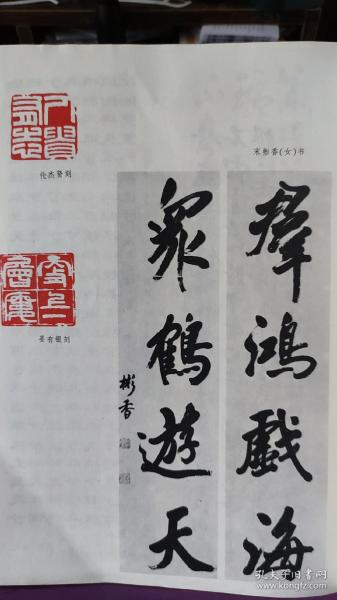 宋彬香(女)书
群鸿戏海
众鹤遊天
彬香
伦杰贤刻
姜有银刻
孔夫子旧书网
www.kongfz.com